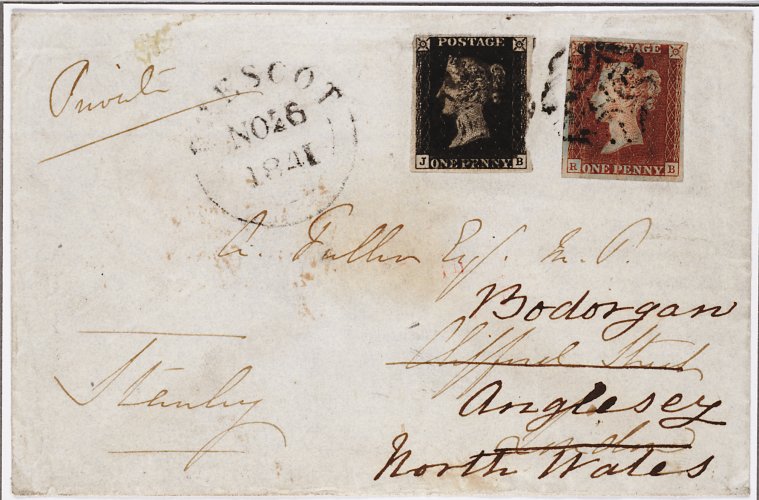 POSTAGE
J ONE PENNY B
AGE
R ONE PENNY B
Private
ESCOT
NO 26
1841
A. Fuller Esq. M. P.
Bodorgan
Clifford Street
Stanley
Anglesey
London
North Wales